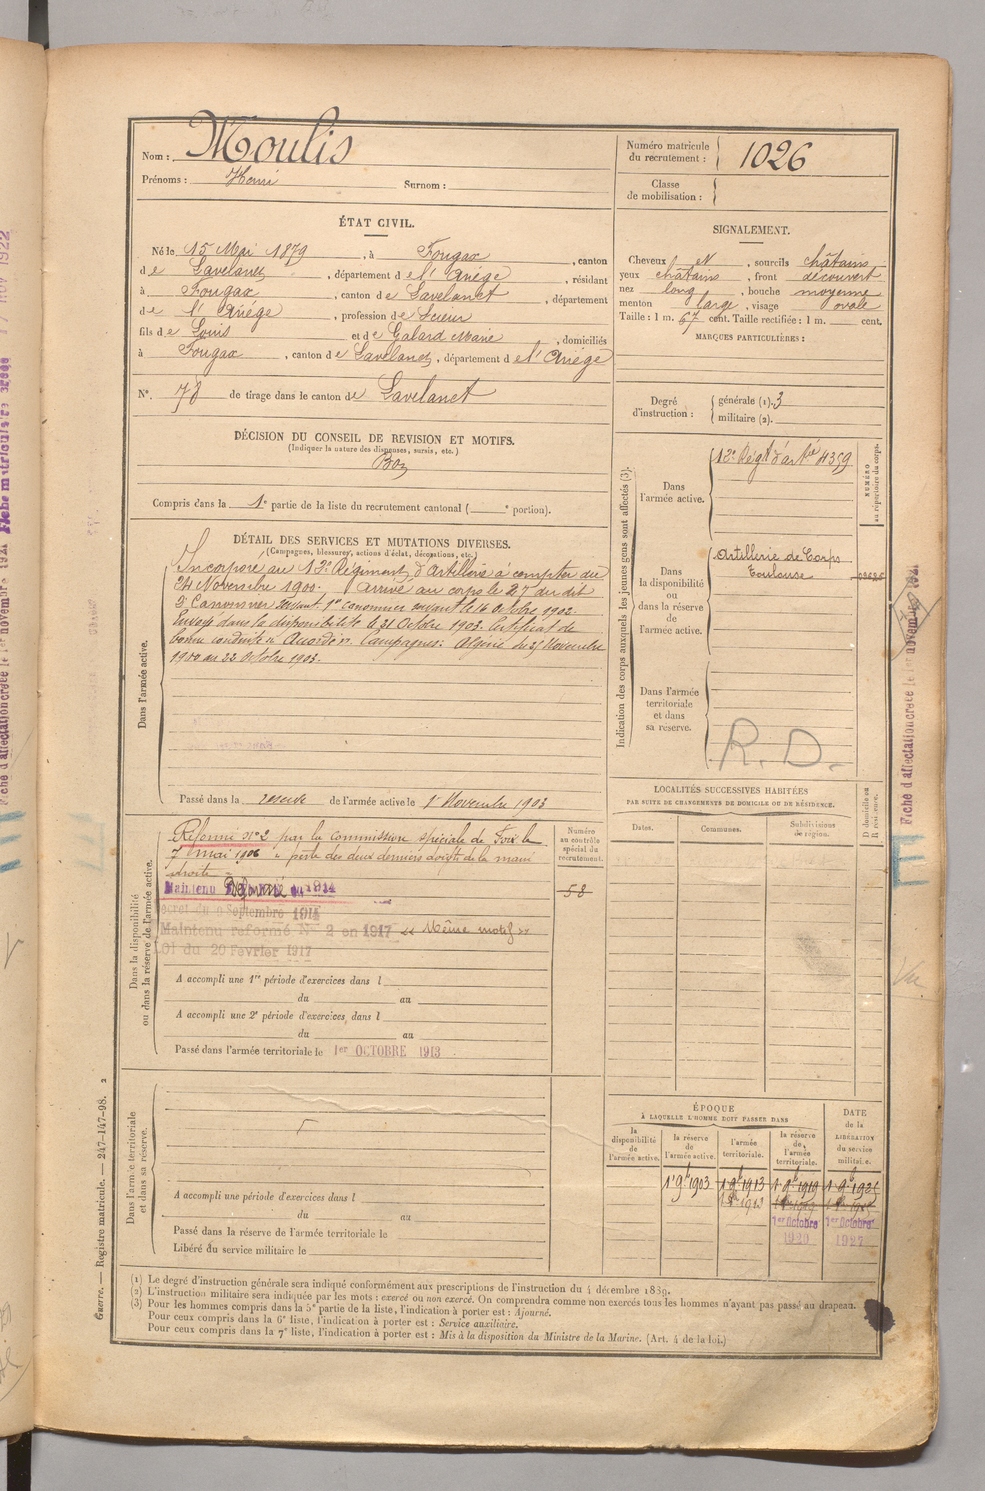 Nom : Moulis
Prénoms : Henri Surnom :
Numéro matricule du recrutement : 1026
Classe de mobilisation :
ÉTAT CIVIL.
Né le 15 Mai 1879, à Fougax, canton
de Lavelanet, département de l'Ariége, résidant
à Fougax, canton de Lavelanet, département
de l'Ariége, profession de Scieur
fils de Louis et de Galard Marie, domiciliés
à Fougax, canton de Lavelanet, département de l'Ariége
N°. 78 de tirage dans le canton de Lavelanet
SIGNALEMENT.
Cheveux N, sourcils châtains
yeux châtains, front découvert
nez long, bouche moyenne
menton large, visage ovale
Taille : 1 m. 67 cent. Taille rectifiée : 1 m. cent.
MARQUES PARTICULIÈRES :
Degré d'instruction : générale (1). 3
militaire (2).
DÉCISION DU CONSEIL DE REVISION ET MOTIFS.
(Indiquer la nature des dispenses, sursis, etc.)
Bon
Compris dans la 1e partie de la liste du recrutement cantonal ( e portion).
DÉTAIL DES SERVICES ET MUTATIONS DIVERSES.
(Campagnes, blessures, actions d'éclat, décorations, etc.)
Dans l'armée active.
Incorporé au 12e Régiment d'Artillerie à compter du
24 Novembre 1900. Arrivé au corps le 27 du dit
2e Canonnier servant. 1er canonnier servant le 16 Octobre 1902.
Envoyé dans la disponibilité le 31 Octobre 1903. Certificat de
bonne conduite "Accordé". Campagnes: Algérie du 27 Novembre
1900 au 22 Octobre 1903.
Passé dans la réserve de l'armée active le 1r Novembre 1903
Indication des corps auxquels les jeunes gens sont affectés (3).
NUMÉRO au répertoire du corps.
Dans l'armée active.
12e Régt d'artie 4359
Dans la disponibilité ou dans la réserve de l'armée active.
Artillerie de Corps
Toulouse
Dans l'armée territoriale et dans sa réserve.
R. D.
Dans la disponibilité ou dans la réserve de l'armée active.
Numéro au contrôle spécial du recrutement.
58
Réformé N° 2 par la Commission spéciale de Foix le
7 mai 1906 " perte des deux derniers doigts de la main
droite "
Maintenu Réformé 1914
Décret du 9 Septembre 1914
Maintenu réformé N° 2 en 1917 " Même motif "
LOI du 20 Février 1917
A accompli une 1re période d'exercices dans l
du au
A accompli une 2e période d'exercices dans l
du au
Passé dans l'armée territoriale le 1er OCTOBRE 1913
LOCALITÉS SUCCESSIVES HABITÉES
PAR SUITE DE CHANGEMENTS DE DOMICILE OU DE RÉSIDENCE.
Dates. Communes. Subdivisions de région. D domicile ou R résidence.
Dans l'armée territoriale et dans sa réserve.
A accompli une période d'exercices dans l
du au
Passé dans la réserve de l'armée territoriale le
Libéré du service militaire le
ÉPOQUE
À LAQUELLE L'HOMME DOIT PASSER DANS
la disponibilité de l'armée active.
la réserve de l'armée active.
l'armée territoriale.
la réserve de l'armée territoriale.
DATE de la LIBÉRATION du service militaire.
1r 9b 1903 1r 9b 1913 1r 9b 1919
1er Octobre 1920 1er Octobre 1927
(1) Le degré d'instruction générale sera indiqué conformément aux prescriptions de l'instruction du 4 décembre 1889.
(2) L'instruction militaire sera indiquée par les mots : exercé ou non exercé. On comprendra comme non exercés tous les hommes n'ayant pas passé au drapeau.
(3) Pour les hommes compris dans la 5e partie de la liste, l'indication à porter est : Ajourné.
Pour ceux compris dans la 6e liste, l'indication à porter est : Service auxiliaire.
Pour ceux compris dans la 7e liste, l'indication à porter est : Mis à la disposition du Ministre de la Marine. (Art. 4 de la loi.)
Guerre. — Registre matricule. — 247-147-98. 2
Fiche d'affectation créée le 1er novembre 1921